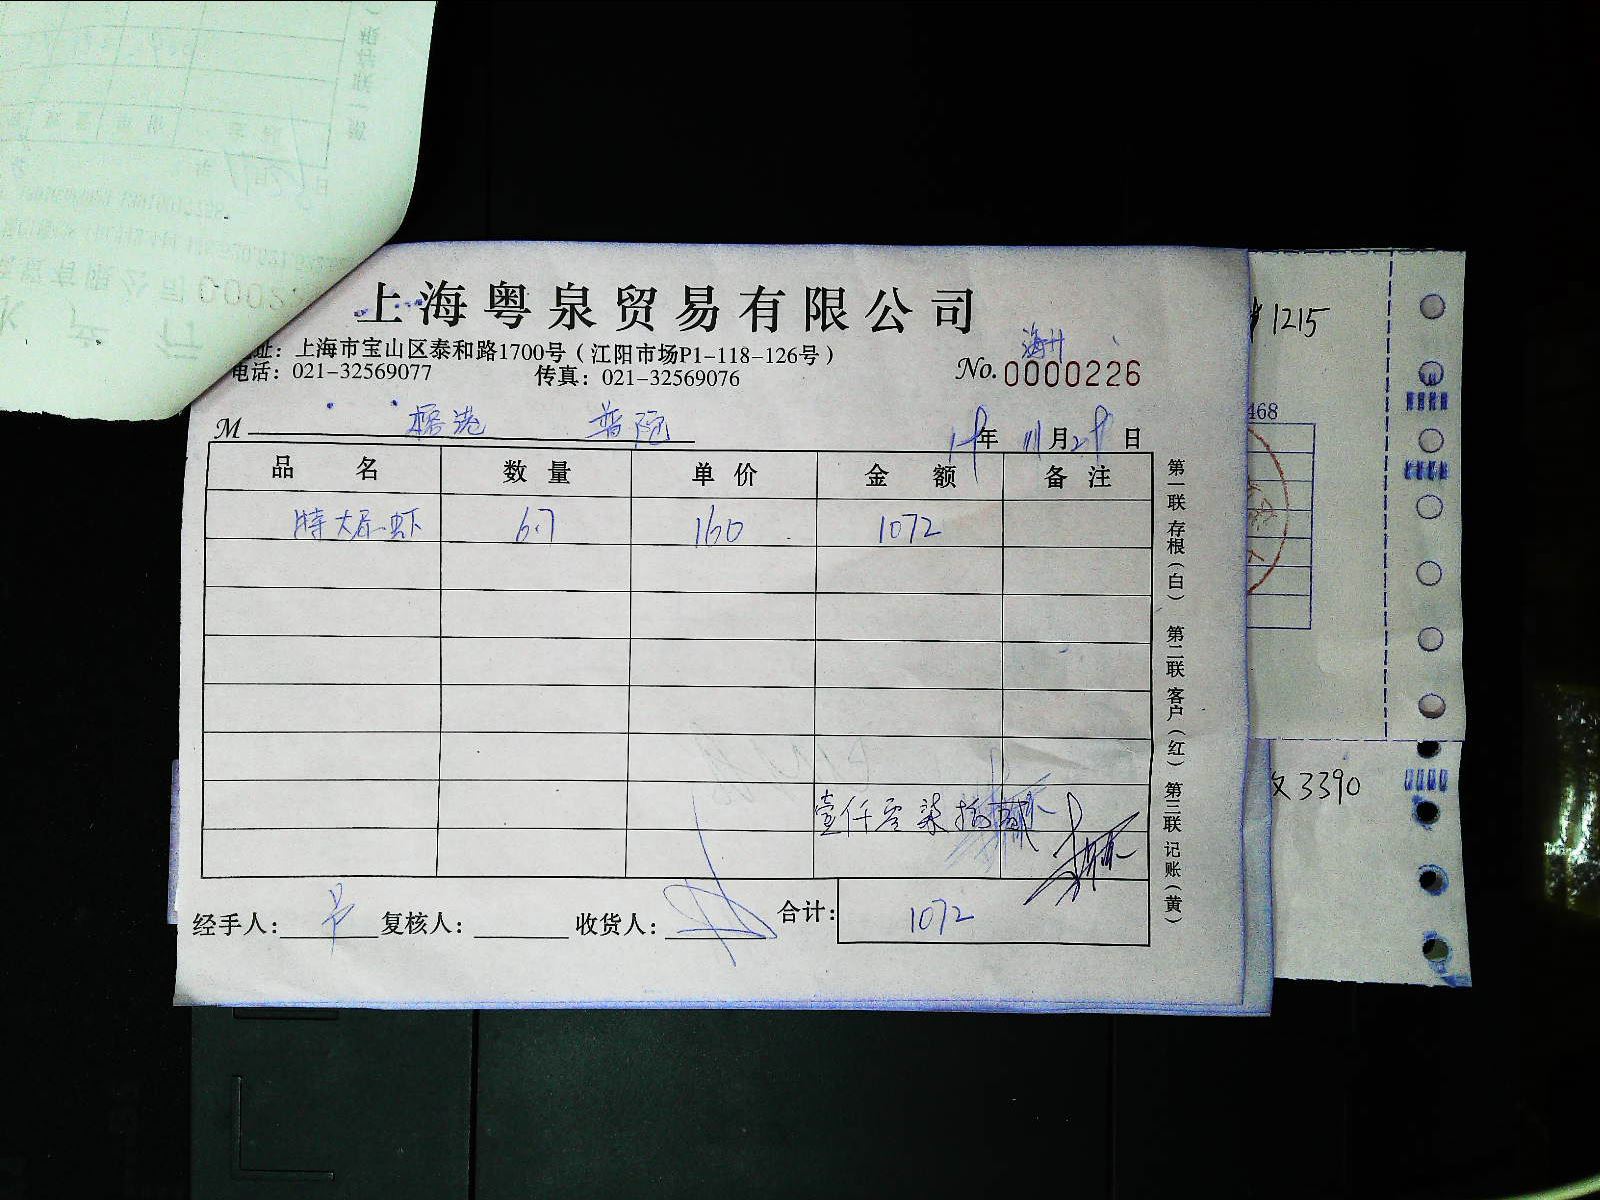 上海粤泉贸易有限公司
址：上海市宝山区泰和路1700号（江阳市场P1-118-126号）
电话：021-32569077 传真：021-32569076
No. 0000226
M 普陀
年 11月29日
品名 数量 单价 金额 备注
特大尾虾 6.7 160 1072
壹仟零柒拾贰
经手人： 复核人： 收货人： 合计： 1072
第一联 存根（白） 第二联 客户（红） 第三联 记账（黄）
1215
468
3390